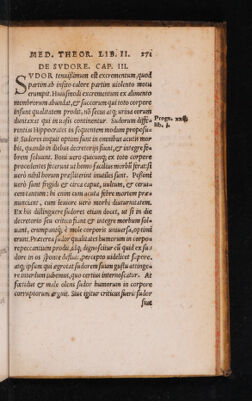 MED. THEOR. LIB. II. 271
DE SVDORE. CAP. III.
SVDOR tenuissimum est excrementum, quod
partim ab insito calore partim violento motu
erumpit. Huiusmodi excrementum ex alimento
membrorum abundat, & succorum qui toto corpore
insunt qualitatem prodit, nō secus atq; urina eorum
duntaxat qui in uasis continentur. Sudorum diffe-
rentias Hippocrates in sequentem modum proposu-
it Sudores optimi sunt in omnibus acutis mor
bis, quando in diebus decretorijs fiunt, & integrè fe-
brem soluunt. Boni uero quicunq; ex toto corpore
procedentes fecerunt ut homo facilius morbū ferat:
qui uero nihil præstiterint inutiles sunt. Pessimi
verò sunt frigidi & circa caput, uultum, & cerui
cem tantum: hi enim cum acuta febre mortem præ-
nunciant, cum leuiore uerò morbi diuturnitatem.
Ex his dilingere sudores etiam docet, ut si in die
decretorio seu critico fiunt & integrè morbum sol-
uant, erumpantq; è mole corporis uniuersa, optimi
erunt. Præterea sudor qualitates humorum in corpo
re peccantium prodit, atq; dignoscitur cū quid ex su-
dore in os sponte defluit, percepto uidelicet sapore,
atq; ipsum qui ægrotat sudorem suum gustu attinge-
re interdum iubemus, quo certius internoscatur. At
fœtidus & male olens sudor humorum in corpore
corruptorum est
Siue igitur criticus fuerit sudor
siue
Progn. xxiij.
lib. j.